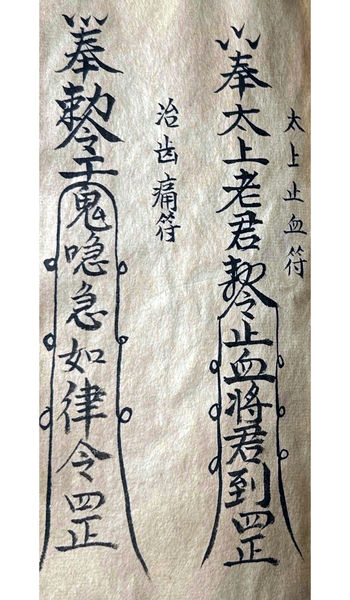 太上止血符
奉太上老君敕令止血将君到四正
治齿痛符
奉敕令工鬼喼急如律令四正